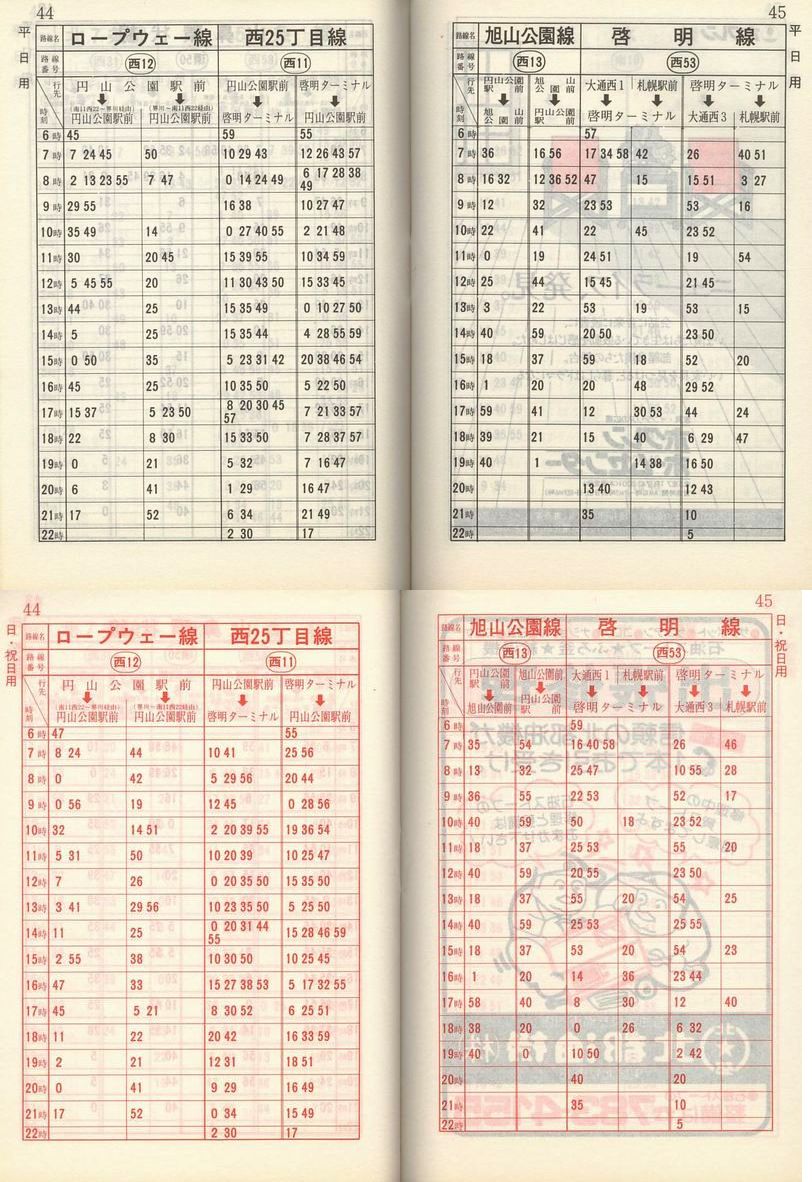 44
平日用
路線名 ロープウェー線 西25丁目線
路線番号 西12 西11
行先 時刻 円山公園駅前 円山公園駅前 啓明ターミナル
(南11西22~界川経由) (界川~南11西22経由)
円山公園駅前 円山公園駅前 啓明ターミナル 円山公園駅前
6時 45 59 55
7時 7 24 45 50 10 29 43 12 26 43 57
8時 2 13 23 55 7 47 0 14 24 49 6 17 28 38 49
9時 29 55 16 38 10 27 47
10時 35 49 14 0 27 40 55 2 21 48
11時 30 20 45 15 39 55 10 34 59
12時 5 45 55 20 11 30 43 50 15 33 45
13時 44 25 15 35 49 0 10 27 50
14時 5 25 15 35 44 4 28 55 59
15時 0 50 35 5 23 31 42 20 38 46 54
16時 45 25 10 35 50 5 22 50
17時 15 37 5 23 50 8 20 30 45 57 7 21 33 57
18時 22 8 30 15 33 50 7 28 37 57
19時 0 21 5 32 7 16 47
20時 6 41 1 29 16 47
21時 17 52 6 34 21 49
22時 2 30 17
45
平日用
路線名 旭山公園線 啓明線
路線番号 西13 西53
行先 時刻 円山公園駅前 旭山公園前 大通西1 札幌駅前 啓明ターミナル
旭山公園前 円山公園駅前 啓明ターミナル 大通西3 札幌駅前
6時 57
7時 36 16 56 17 34 58 42 26 40 51
8時 16 32 12 36 52 47 15 15 51 3 27
9時 12 32 23 53 53 16
10時 22 41 22 45 23 52
11時 0 19 24 51 19 54
12時 25 44 15 45 21 45
13時 3 22 53 19 53 15
14時 40 59 20 50 23 50
15時 18 37 59 18 52 20
16時 1 20 20 48 29 52
17時 59 41 12 30 53 44 24
18時 39 21 15 40 6 29 47
19時 40 1 14 38 16 50
20時 13 40 12 43
21時 35 10
22時 5
44
日・祝日用
路線名 ロープウェー線 西25丁目線
路線番号 西12 西11
行先 時刻 円山公園駅前 円山公園駅前 啓明ターミナル
(南11西22~界川経由) (界川~南11西22経由)
円山公園駅前 円山公園駅前 啓明ターミナル 円山公園駅前
6時 47 55
7時 8 24 44 10 41 25 56
8時 0 42 5 29 56 20 44
9時 0 56 19 12 45 0 28 56
10時 32 14 51 2 20 39 55 19 36 54
11時 5 31 50 10 20 39 10 25 47
12時 7 26 0 20 35 50 15 35 50
13時 3 41 29 56 10 23 35 50 5 25 50
14時 11 25 0 20 31 44 55 15 28 46 59
15時 2 55 38 10 30 50 10 25 45
16時 47 33 15 27 38 53 5 17 32 55
17時 45 5 21 8 30 52 6 25 51
18時 11 22 20 42 16 33 59
19時 2 21 12 31 18 51
20時 0 41 9 29 16 49
21時 17 52 0 34 15 49
22時 2 30 17
45
日・祝日用
路線名 旭山公園線 啓明線
路線番号 西13 西53
行先 時刻 円山公園駅前 旭山公園前 大通西1 札幌駅前 啓明ターミナル
旭山公園前 円山公園駅前 啓明ターミナル 大通西3 札幌駅前
6時 59
7時 35 54 16 40 58 26 46
8時 13 32 25 47 10 55 28
9時 36 55 22 53 52 17
10時 40 59 50 18 23 52
11時 18 37 25 53 55 20
12時 40 59 20 55 23 50
13時 18 37 55 20 54 25
14時 40 59 25 53 25 55
15時 18 37 53 20 54 23
16時 1 20 14 36 23 44
17時 58 40 8 30 12 40
18時 38 20 0 26 6 32
19時 40 0 10 50 2 42
20時 40 20
21時 35 10
22時 5